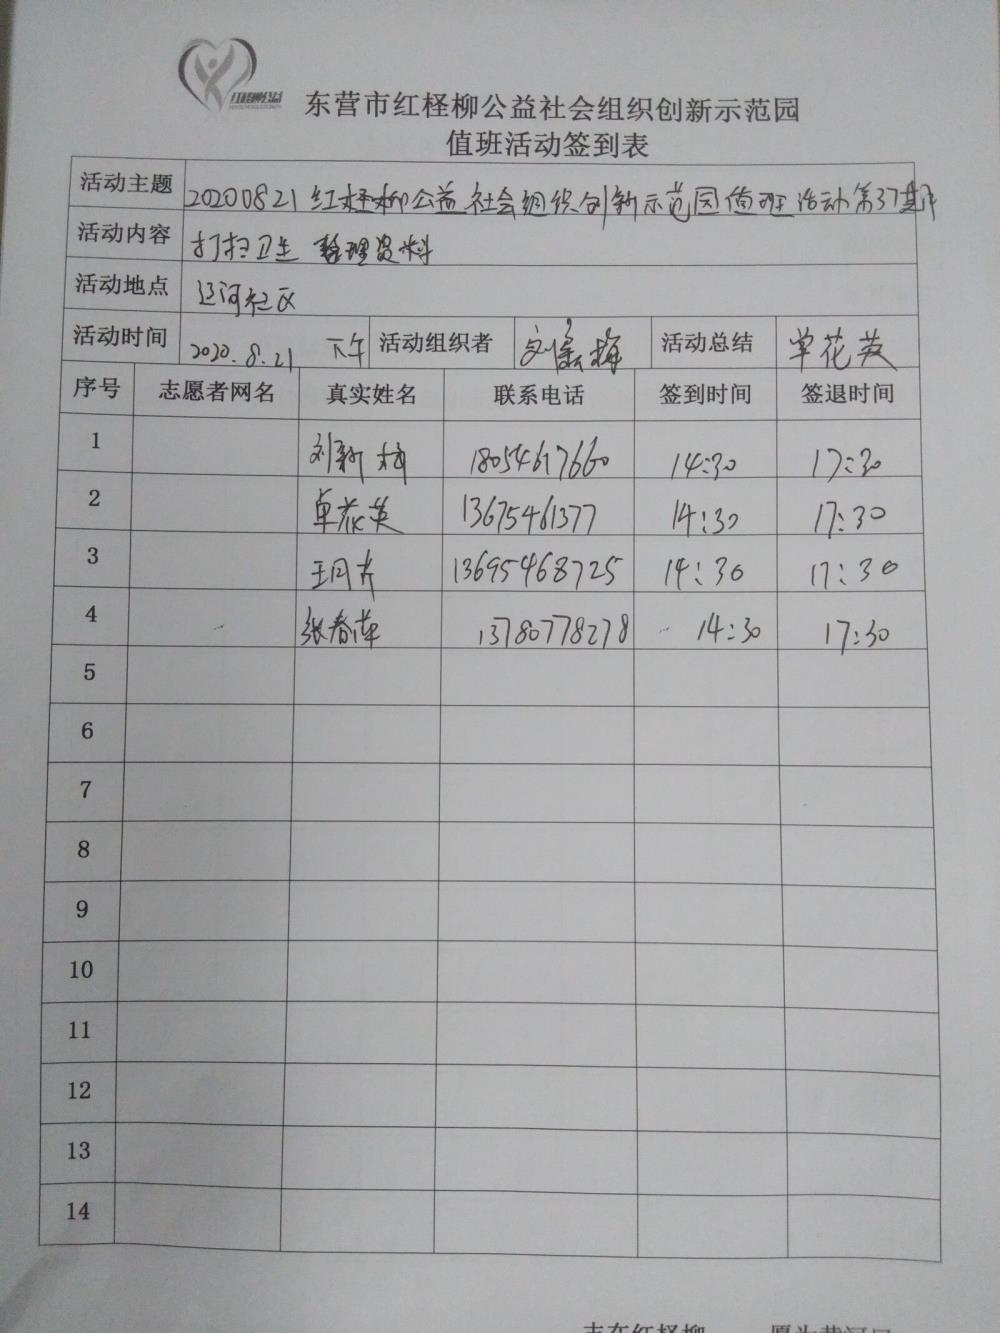 红柽柳公益
东营市红柽柳公益社会组织创新示范园
值班活动签到表
活动主题 20200821红柽柳公益社会组织创新示范园值班活动第37期
活动内容 打扫卫生 整理资料
活动地点 辽河社区
活动时间 2020.8.21 下午 活动组织者 刘新梅 活动总结 卓花英
序号 志愿者网名 真实姓名 联系电话 签到时间 签退时间
1 刘新梅 18054617660 14:30 17:30
2 卓花英 13675461377 14:30 17:30
3 王月 13695468725 14:30 17:30
4 张春萍 13780778278 14:30 17:30
5
6
7
8
9
10
11
12
13
14
志在红柽柳 愿为黄河口